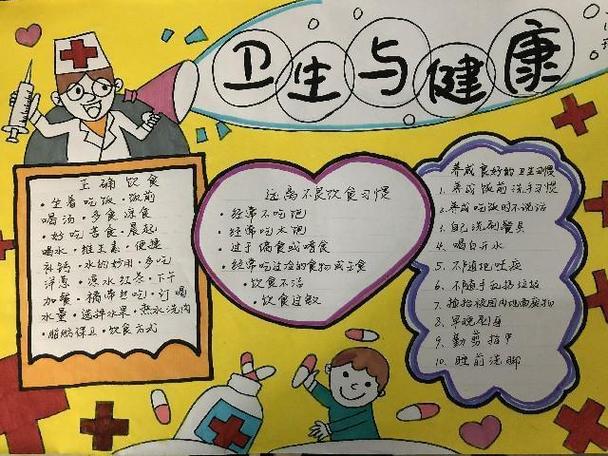 卫生与健康
正确饮食
·坐着吃饭·饭前
喝汤·多食凉食
·好吃苦食·晨起
喝水·维生素·便捷
补钙·水的妙用·多吃
洋葱·凉水红茶·下午
加餐·携带包吃·订喝
水量·选择水果·热水洗肉
·脂肪保卫·饮食方式
远离不良饮食习惯
·经常不吃饱
·经常吃太饱
·过于偏食或嗜食
·经常吃过冷的食物或主食
·饮食不洁
·饮食过数
养成良好的卫生习惯
1. 养成饭前洗手习惯
2. 养成吃饭时不说话
3. 自己洗刷餐具
4. 喝白开水
5. 不随地吐痰
6. 不随手乱扔垃圾
7.
8. 早晚刷牙
9. 勤剪指甲
10. 睡前洗脚